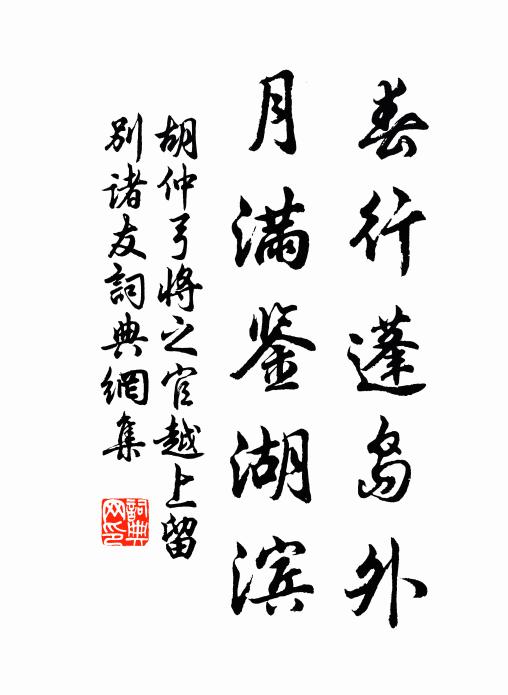 春行蓬岛外
月满鉴湖滨
胡仲弓将之官越上留
别诸友詞典網集
詞典網印